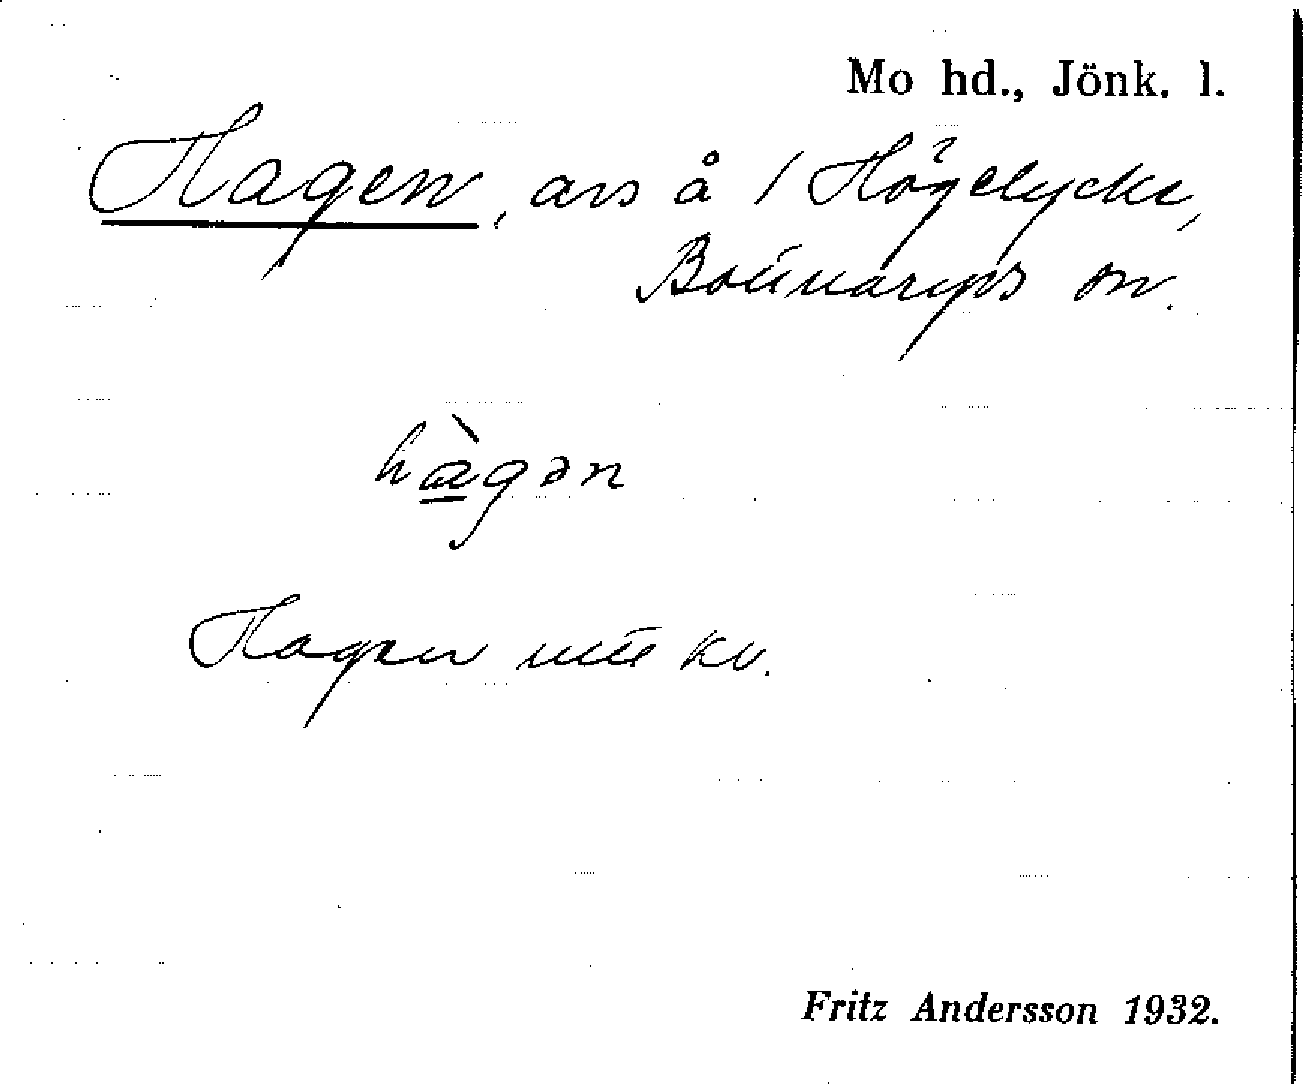 Mo hd., Jönk. l.
Hagen, avs å 1 Högelycke,
Bottnaryps sn.
hàgən
Hagen utte kv.
Fritz Andersson 1932.